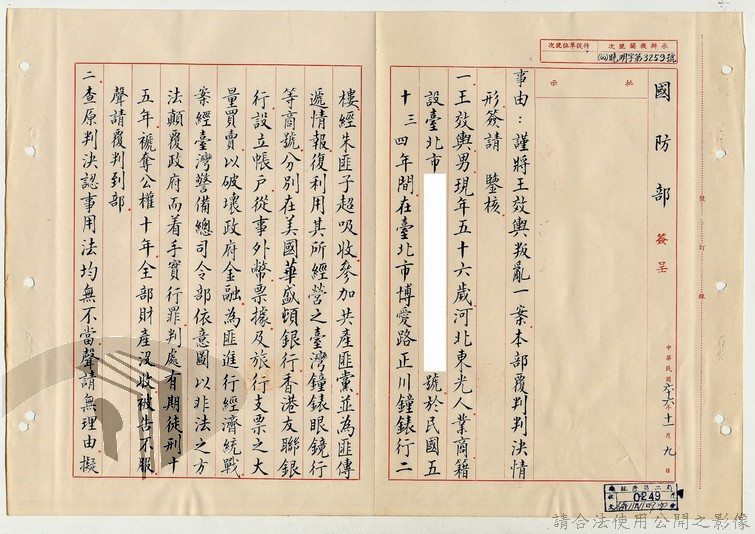 承辦機關號次
待從單位號次
(66)曉明字第3259號
批示
國防部簽呈
中華民國六十六年十一月九日
事由：謹將王效輿叛亂一案本部覆判判決情
形簽請 鑒核
一王效輿男現年五十六歲河北東光人業商籍
設臺北市 號於民國五
十三四年間在臺北市博愛路正川鐘錶行二
樓經朱匪子超吸收參加共產匪黨並為匪傳
遞情報復利用其所經營之臺灣鐘錶眼鏡行
等商號分別在美國華盛頓銀行香港友聯銀
行設立帳戶從事外幣票據及旅行支票之大
量買賣以破壞政府金融為匪進行經濟統戰
案經臺灣警備總司令部依意圖以非法之方
法顛覆政府而着手實行罪判處有期徒刑十
五年褫奪公權十年全部財產沒收被告不服
聲請覆判到部
二查原判決認事用法均無不當聲請無理由擬
0249
請合法使用公開之影像